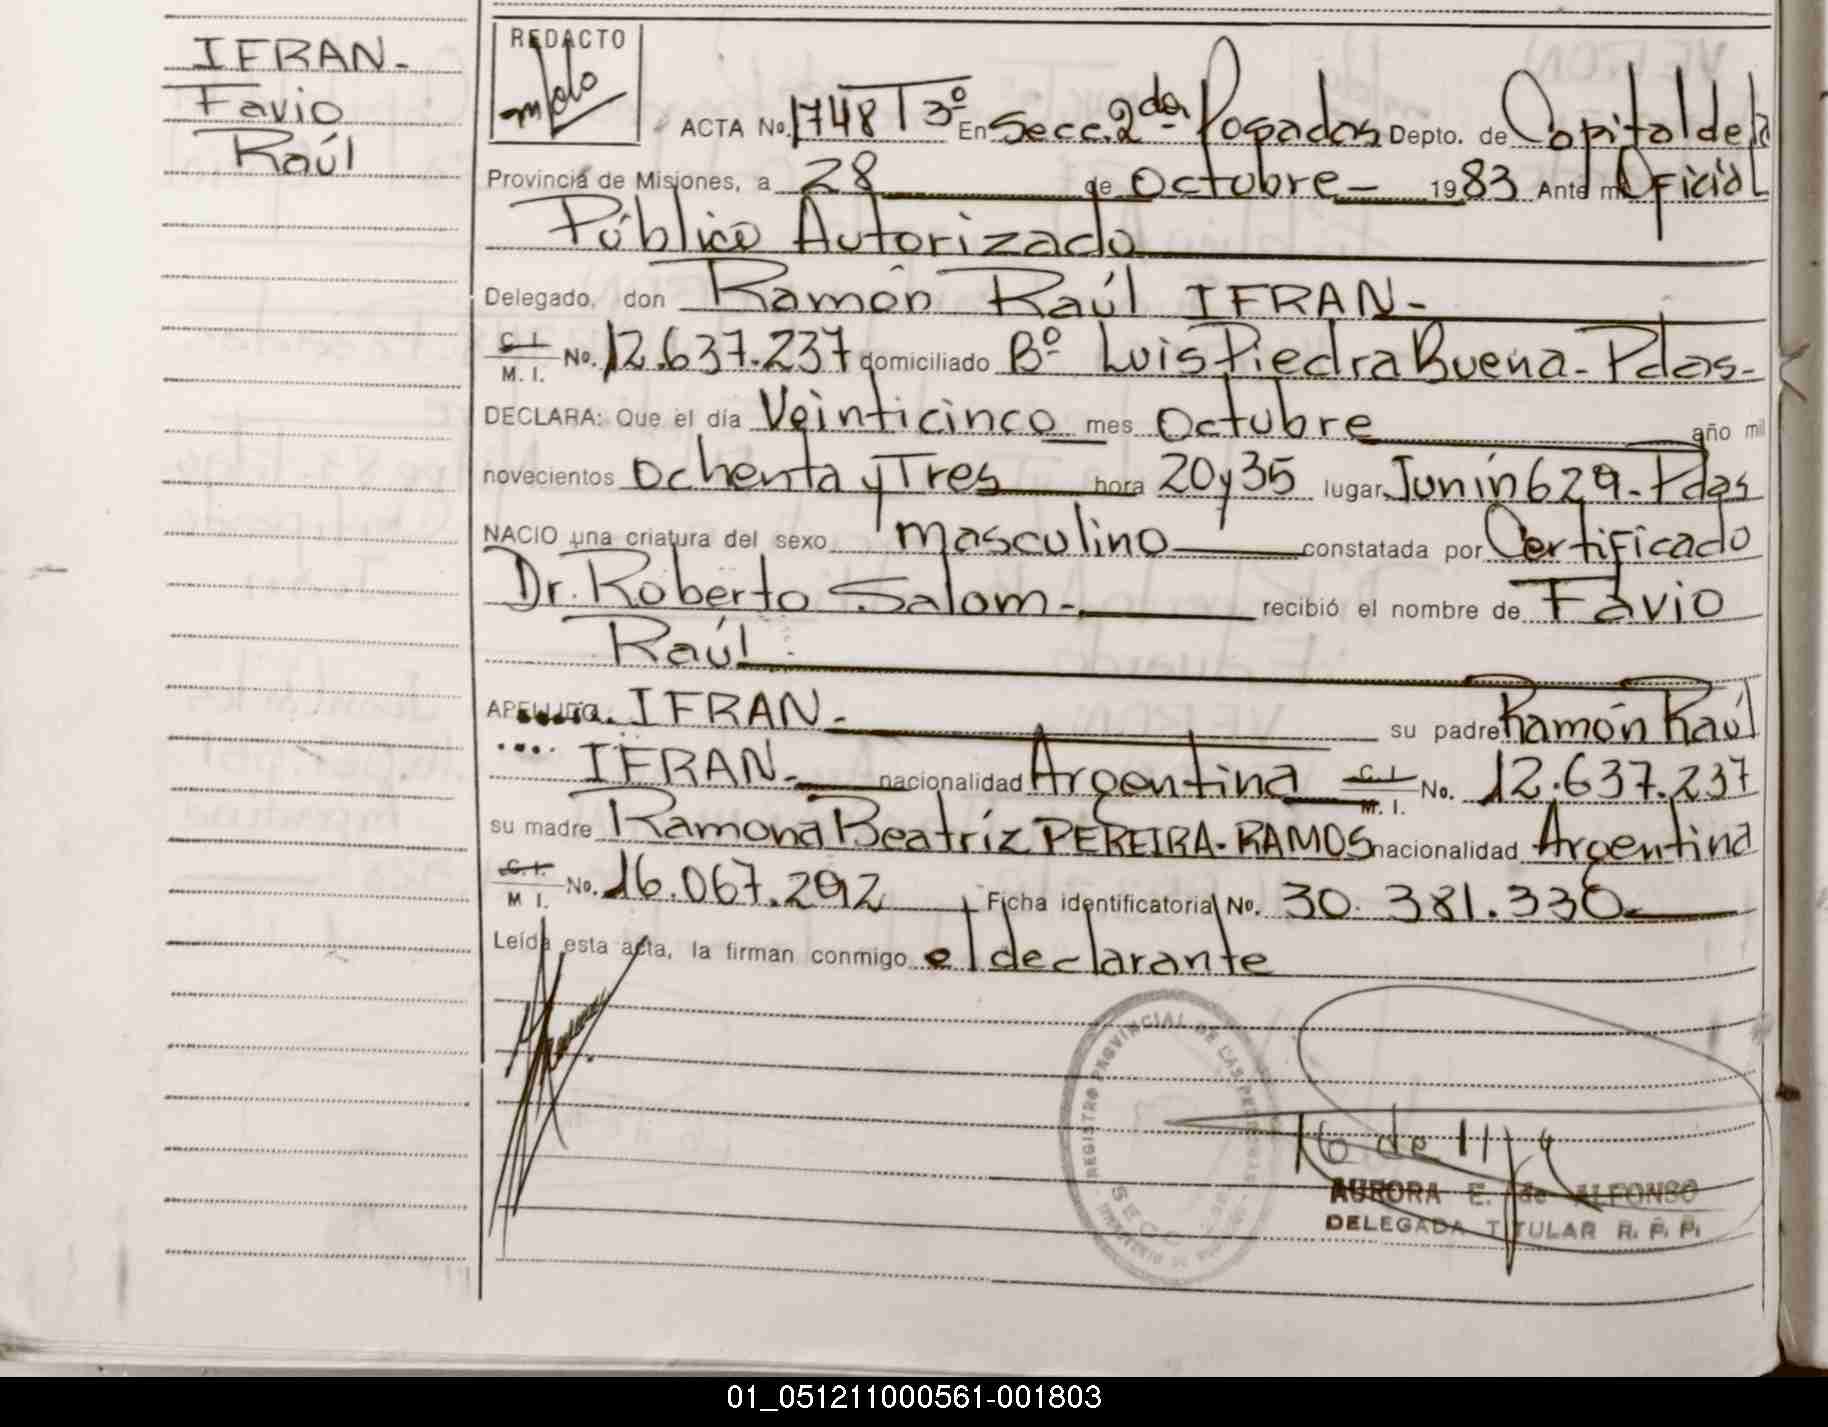 IFRAN-
Favio
Raúl
REDACTO
ACTA No. 1748 T3º En Secc. 2da Posadas Depto. de Capital de la
Provincia de Misiones, a 28 de Octubre - 1983 Ante mi Oficial
Público Autorizado
Delegado, don Ramón Raúl IFRAN-
C. I. M. I. No. 12.637.237 domiciliado Bº Luis Piedra Buena - Pdas-
DECLARA: Que el día Veinticinco mes Octubre año mil
novecientos Ochenta y Tres hora 20 y 35 lugar Junín 629 - Pdas
NACIO una criatura del sexo masculino constatada por Certificado
Dr. Roberto Salom- recibió el nombre de Favio
Raúl
APELLIDO IFRAN- su padre Ramón Raúl
IFRAN- nacionalidad Argentina C. I. M. I. No. 12.637.237
su madre Ramona Beatríz PEREIRA-RAMOS nacionalidad Argentina
C. I. M I. No. 16.067.292 Ficha identificatoria No. 30.381.330-
Leída esta acta, la firman conmigo el declarante
REGISTRO PROVINCIAL DE LAS PERSONAS
SECC.
AURORA E. de ALFONSO
DELEGADA TITULAR R. P. P.
01_051211000561-001803